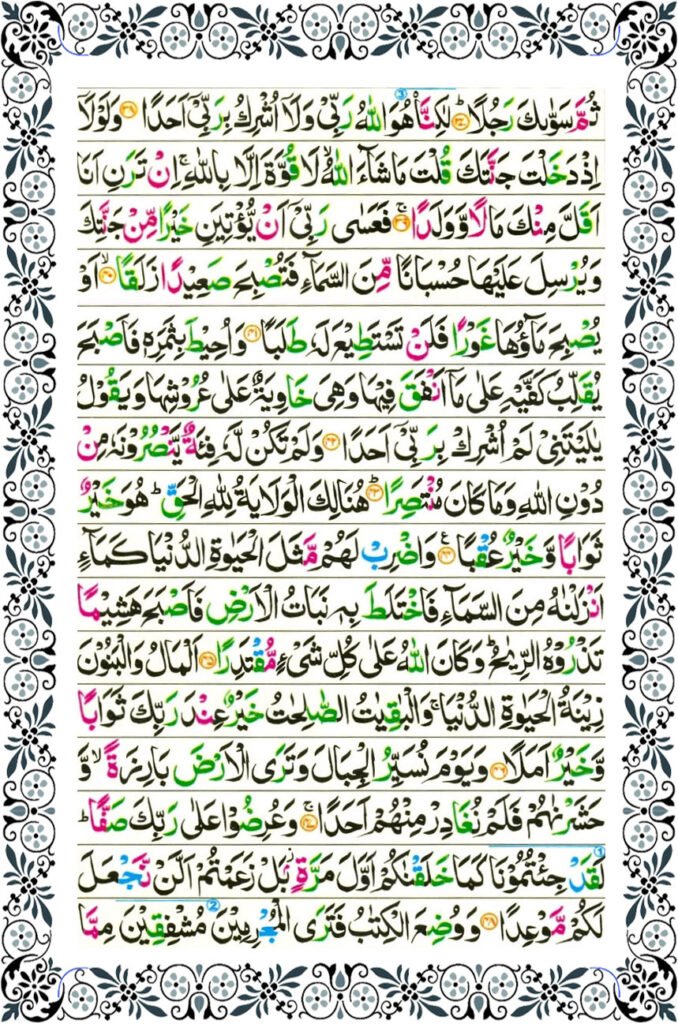 ثُمَّ سَوّٰىكَ رَجُلًا ؕ﴿۳۷﴾ لٰكِنَّا۠ هُوَ اللّٰهُ رَبِّیْ وَلَاۤ اُشْرِكُ بِرَبِّیْۤ اَحَدًا ﴿۳۸﴾ وَلَوْلَاۤ
اِذْ دَخَلْتَ جَنَّتَكَ قُلْتَ مَا شَآءَ اللّٰهُ ۙ لَا قُوَّةَ اِلَّا بِاللّٰهِ ۚ اِنْ تَرَنِ اَنَا
اَقَلَّ مِنْكَ مَالًا وَّوَلَدًا ۚ﴿۳۹﴾ فَعَسٰی رَبِّیْۤ اَنْ یُّؤْتِیَنِ خَیْرًا مِّنْ جَنَّتِكَ
وَیُرْسِلَ عَلَیْهَا حُسْبَانًا مِّنَ السَّمَآءِ فَتُصْبِحَ صَعِیْدًا زَلَقًا ﴿۴۰﴾ۙ اَوْ
یُصْبِحَ مَآؤُهَا غَوْرًا فَلَنْ تَسْتَطِیْعَ لَهٗ طَلَبًا ﴿۴۱﴾ وَاُحِیْطَ بِثَمَرِهٖ فَاَصْبَحَ
یُقَلِّبُ كَفَّیْهِ عَلٰی مَاۤ اَنْفَقَ فِیْهَا وَهِیَ خَاوِیَةٌ عَلٰی عُرُوْشِهَا وَیَقُوْلُ
یٰلَیْتَنِیْ لَمْ اُشْرِكْ بِرَبِّیْۤ اَحَدًا ﴿۴۲﴾ وَلَمْ تَكُنْ لَّهٗ فِئَةٌ یَّنْصُرُوْنَهٗ مِنْ
دُوْنِ اللّٰهِ وَمَا كَانَ مُنْتَصِرًا ؕ﴿۴۳﴾ هُنَالِكَ الْوَلَایَةُ لِلّٰهِ الْحَقِّ ؕ هُوَ خَیْرٌ
ثَوَابًا وَّخَیْرٌ عُقْبًا ﴿۴۴﴾ۧ وَاضْرِبْ لَهُمْ مَّثَلَ الْحَیٰوةِ الدُّنْیَا كَمَآءٍ
اَنْزَلْنٰهُ مِنَ السَّمَآءِ فَاخْتَلَطَ بِهٖ نَبَاتُ الْاَرْضِ فَاَصْبَحَ هَشِیْمًا
تَذْرُوْهُ الرِّیٰحُ ؕ وَكَانَ اللّٰهُ عَلٰی كُلِّ شَیْءٍ مُّقْتَدِرًا ﴿۴۵﴾ اَلْمَالُ وَالْبَنُوْنَ
زِیْنَةُ الْحَیٰوةِ الدُّنْیَا ۚ وَالْبٰقِیٰتُ الصّٰلِحٰتُ خَیْرٌ عِنْدَ رَبِّكَ ثَوَابًا
وَّخَیْرٌ اَمَلًا ﴿۴۶﴾ وَیَوْمَ نُسَیِّرُ الْجِبَالَ وَتَرَی الْاَرْضَ بَارِزَةً ۙ وَّ
حَشَرْنٰهُمْ فَلَمْ نُغَادِرْ مِنْهُمْ اَحَدًا ۚ﴿۴۷﴾ وَعُرِضُوْا عَلٰی رَبِّكَ صَفًّا ؕ
لَقَدْ جِئْتُمُوْنَا كَمَا خَلَقْنٰكُمْ اَوَّلَ مَرَّةٍۭ ؗ بَلْ زَعَمْتُمْ اَلَّنْ نَّجْعَلَ
لَكُمْ مَّوْعِدًا ﴿۴۸﴾ وَوُضِعَ الْكِتٰبُ فَتَرَی الْمُجْرِمِیْنَ مُشْفِقِیْنَ مِمَّا